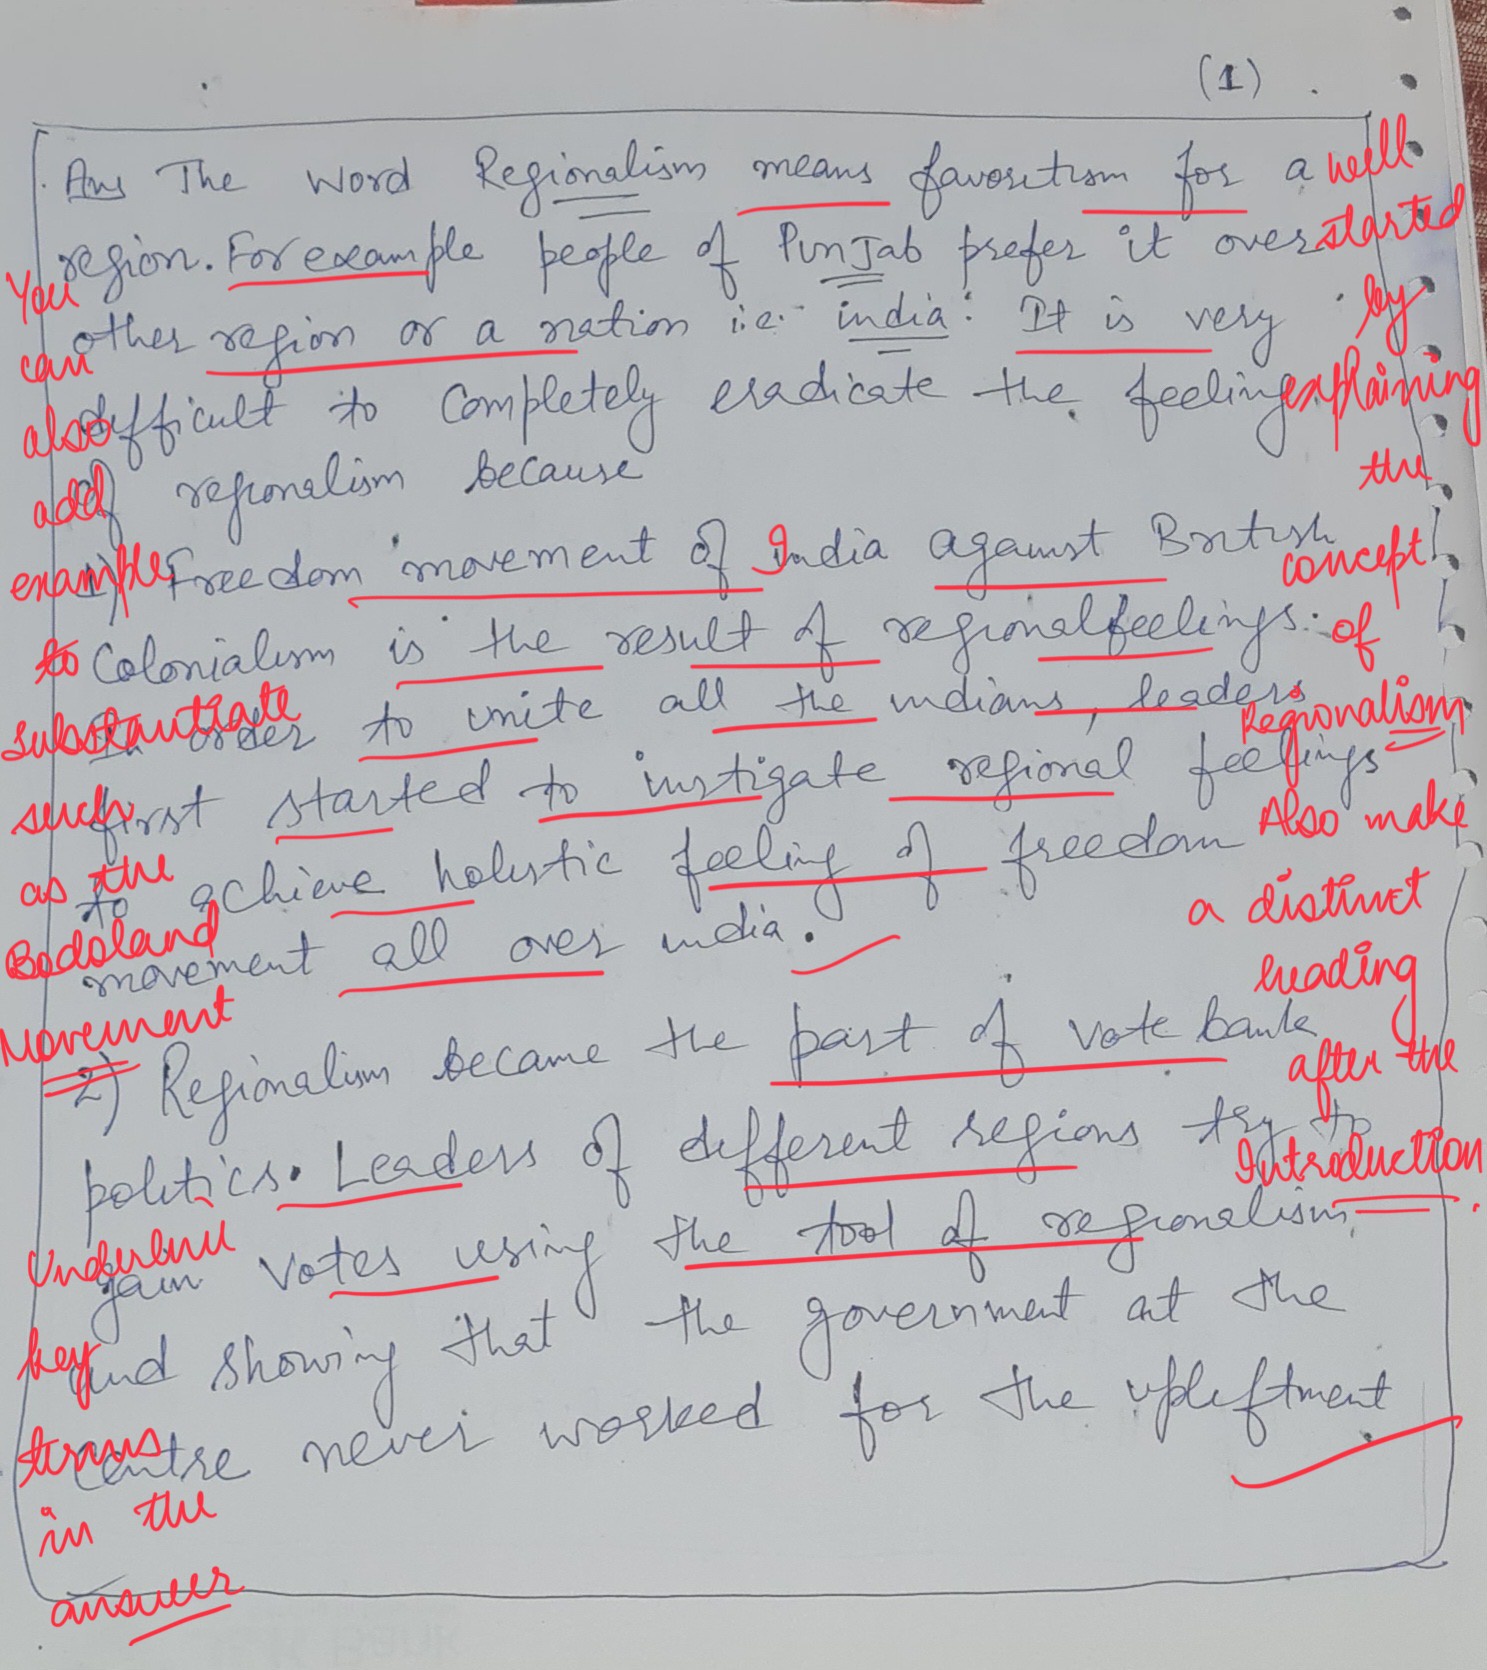 (1)
Ans The word Regionalism means favoritism for a
region. For example people of Punjab prefer it over
other region or a nation i.e. india. It is very
difficult to completely eradicate the feeling
of regionalism because
1) Freedom movement of India against British
Colonialism is the result of regional feelings.
In order to unite all the indians, leaders
first started to instigate regional feelings
to achieve holistic feeling of freedom
movement all over india.
2) Regionalism became the part of vote bank
politics. Leaders of different regions try to
gain votes using the tool of regionalism
and showing that the government at the
centre never worked for the upleftment
well
started
by
explaining
the
concept
of
Regionalism
Also make
a distinct
heading
after the
Introduction.
You
can
also
add
example
to
substantiate
such
as the
Bodoland
Movement
Underline
key
terms
in the
answer